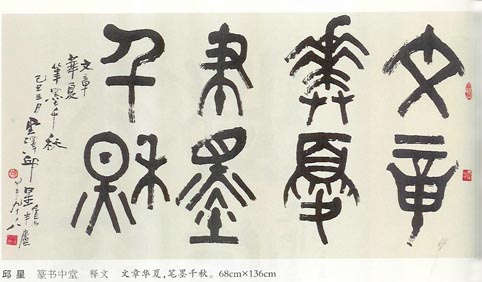 文章
華夏
聿墨
千秋
文章
華夏
筆墨千秋
己丑三月
邱星 篆书中堂 释文 文章华夏,笔墨千秋。68cm×136cm